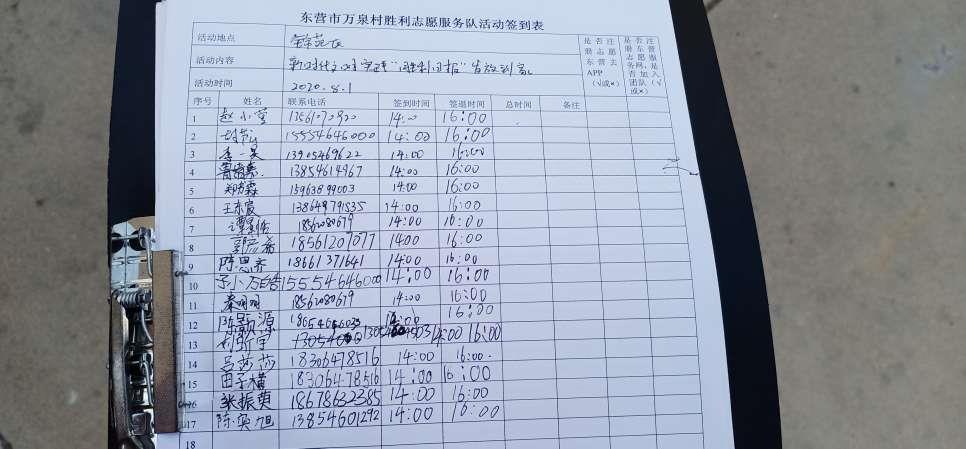 东营市万泉村胜利志愿服务队活动签到表
活动地点
是否注册志愿东营去APP（√或×）
是否注册东营志愿服务网，是否加入团队（√或×）
活动内容 新时代
活动时间 2020.8.1
序号 姓名 联系电话 签到时间 签退时间 总时间 备注
1 赵小莹 13561070920 14:00 16:00
2 15554646000 14:00 16:00
3 李一昊 13905469622 14:00 16:00
4 13854614967 14:00 16:00
5 郑方霖 15963899003 14:00 16:00
6 王东宸 138649791535 14:00 16:00
7 18562080679 14:00 16:00
8 郭彦希 18561207077 1400 16:00
9 陈思齐 18661371641 14:00 16:00
10 15554646000 14:00 16:00
11 秦明明 18562080679 14:00 16:00
12 陈颢源 16:00
13 14:00 16:00
14 吕莎莎 18306478516 14:00 16:00
15 田子横 18306478516 14:00 16:00
16 张振英 18678632385 14:00 16:00
17 陈奕旭 13854601292 14:00 16:00
18